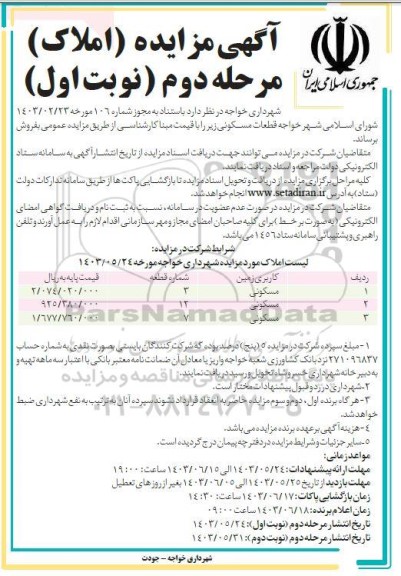 آگهی مزایده (املاک)
مرحله دوم (نوبت اول)
جمهوری اسلامی ایران
شهرداری خواجه در نظر دارد باستناد به مجوز شماره ۱۰۶ مورخه ۱۴۰۳/۰۲/۲۳
شورای اسلامی شهر خواجه قطعات مسکونی زیر را با قیمت مبنا کارشناسی از طریق مزایده عمومی بفروش
برساند.
متقاضیان شرکت در مزایده می توانند جهت دریافت اسناد مزایده از تاریخ انتشار آگهی به سامانه ستاد
الکترونیکی دولت مراجعه و اسناد دریافت نمایند.
کلیه مراحل برگزاری مزایده از دریافت و تحویل اسناد مزایده تا بازگشایی پاکت ها از طریق سامانه تدارکات دولت
(ستاد) به آدرس www.setadiran.ir انجام خواهد شد.
متقاضیان شرکت در مزایده در صورت عدم عضویت در سامانه، نسبت به ثبت نام و دریافت گواهی امضای
الکترونیکی (به صورت بر خط) برای کلیه صاحبان امضای مجاز و مهر سازمانی اقدام لازم را به عمل آورند و تلفن
راهبری و پشتیبانی سامانه ستاد ۱۴۵۶ می باشد.
شرایط شرکت در مزایده:
لیست املاک مورد مزایده شهرداری خواجه مورخه ۱۴۰۳/۰۵/۲۴
ردیف کاربری زمین شماره قطعه قیمت پایه به ریال
۱ مسکونی ۳ ۲/۰۷۴/۰۲۰/۰۰۰
۲ مسکونی ۱۲ ۹۲۵/۳۸۰/۰۰۰
۳ مسکونی ۷ ۱/۶۷۷/۷۶۰/۰۰۰
۱- مبلغ سپرده شرکت در مزایده ۵ (پنج) درصد بوده که شرکت کنندگان بایستی بصورت نقدی به شماره حساب
۲۷۱۰۹۶۸۳۷ نزد بانک کشاورزی شعبه خواجه واریز یا معادل آن ضمانت نامه معتبر بانکی با اعتبار سه ماهه تهیه و
به دبیرخانه شهرداری تحویل و رسید دریافت نمایند.
۲- شهرداری در رد و قبول پیشنهادات مختار است.
۳- هر گاه برنده اول، دوم و سوم مزایده حاضر به انعقاد قرارداد نشوند سپرده آنان به ترتیب به نفع شهرداری ضبط
خواهد شد.
۴- هزینه آگهی بر عهده برنده مزایده می باشد.
۵- سایر جزئیات و شرایط مزایده در دفترچه پیمان درج گردیده است.
مواعد زمانی:
مهلت ارائه پیشنهادات: ۱۴۰۳/۰۵/۲۴ الی ۱۴۰۳/۰۶/۱۵ ساعت: ۱۹:۰۰
مهلت بازدید از تاریخ ۱۴۰۳/۰۵/۲۵ الی ۱۴۰۳/۰۶/۰۵ بغیر از روز های تعطیل
زمان بازگشایی پاکات: ۱۴۰۳/۰۶/۱۷ ساعت: ۱۴:۳۰
زمان اعلام برنده: ۱۴۰۳/۰۶/۱۸ ساعت: ۰۹:۰۰
تاریخ انتشار مرحله دوم (نوبت اول): ۱۴۰۳/۰۵/۲۴
تاریخ انتشار مرحله دوم (نوبت دوم): ۱۴۰۳/۰۵/۳۱
شهرداری خواجه - جودت
ParsNamadData
۰۲۱-۸۸۳۴۹۶۷۰-۵